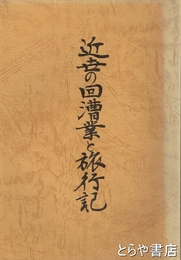 近世の回漕業と旅行記
とらや書店